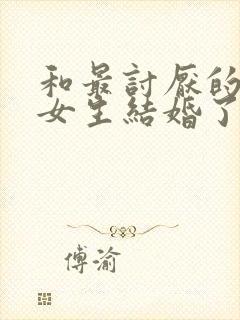 和最討厭的
女生結婚了
傅渝